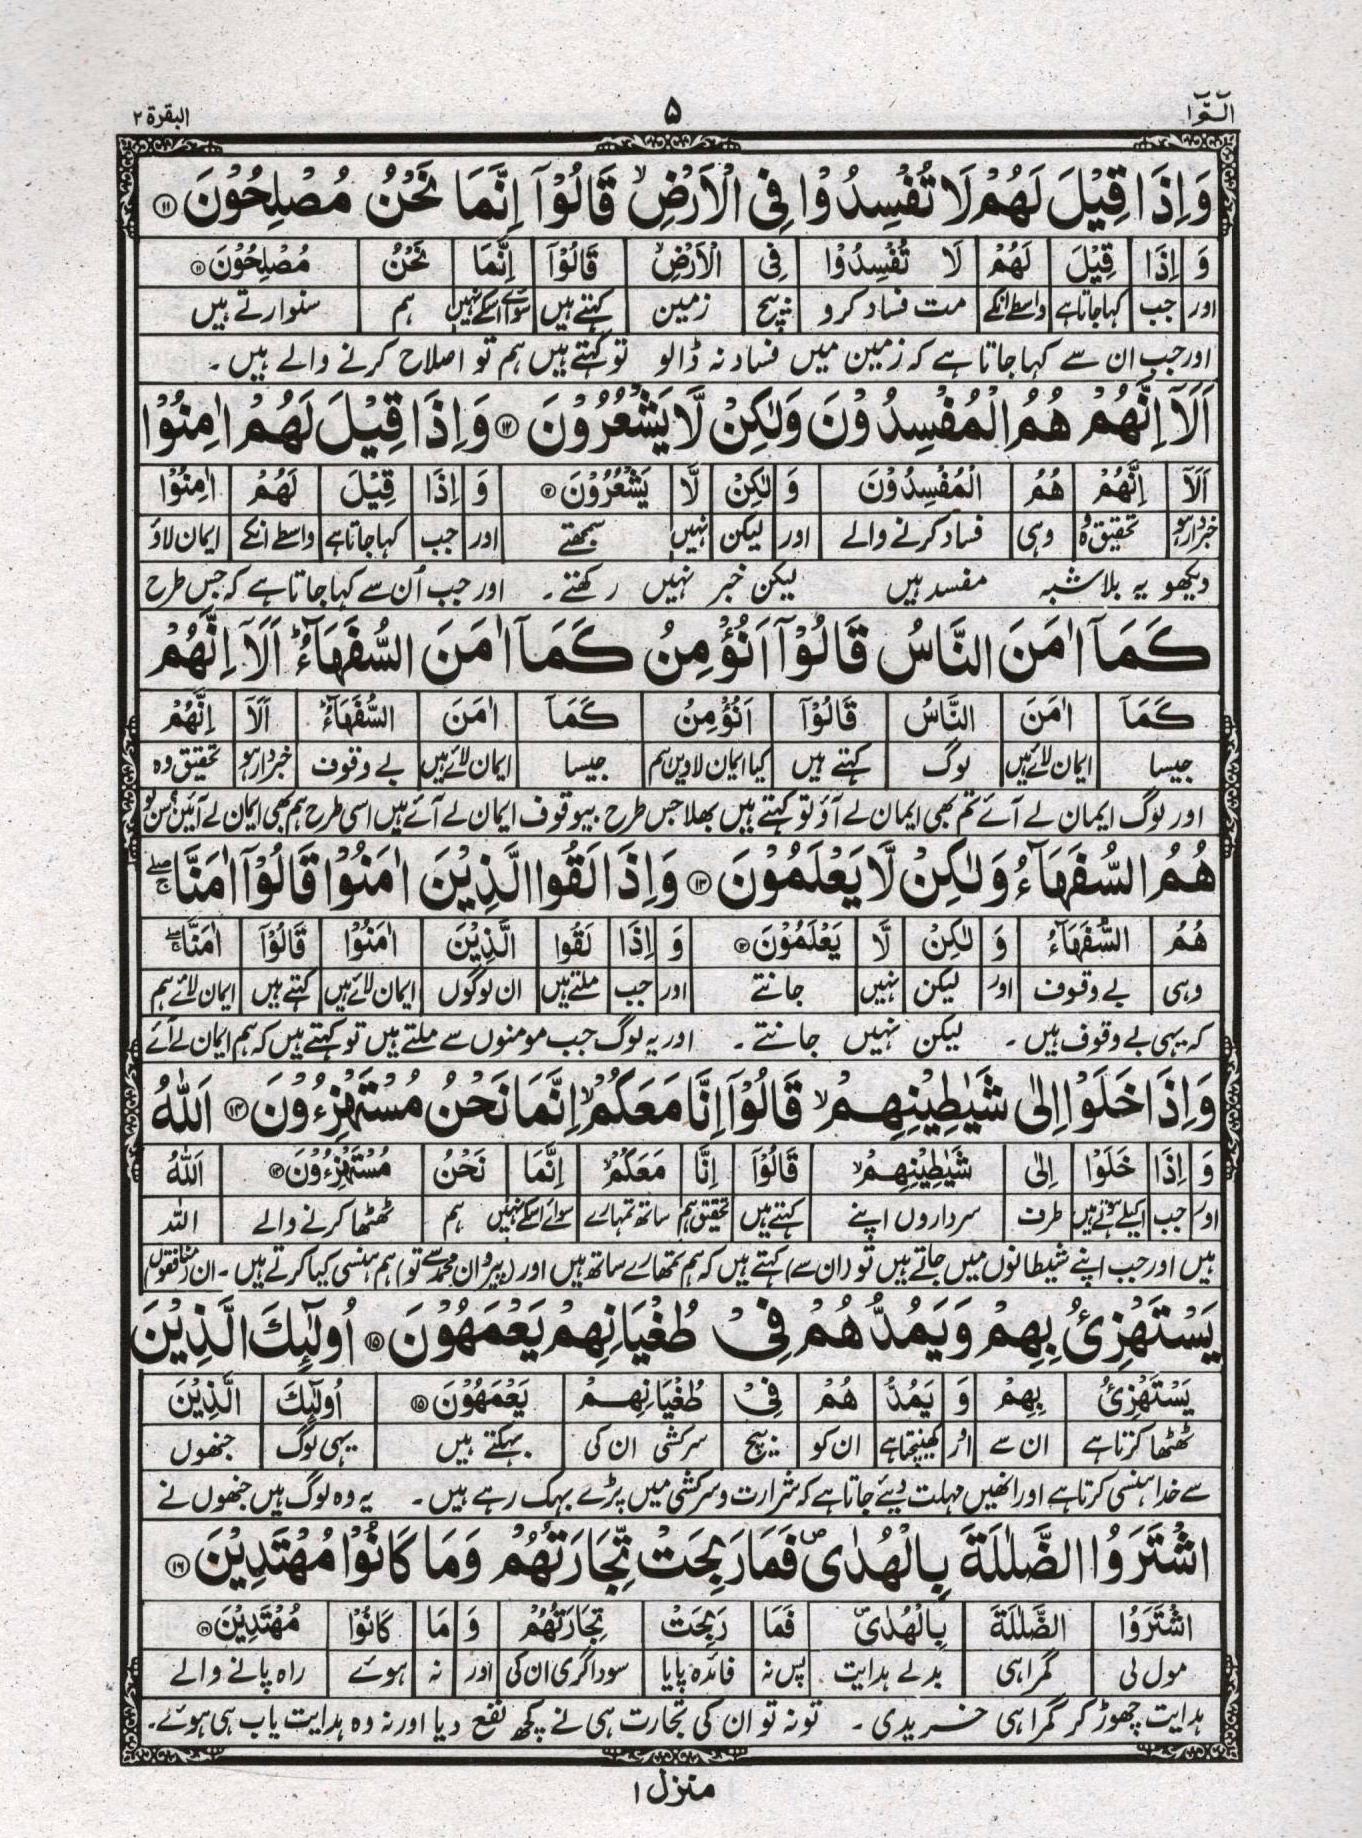 الٓمّٓ ۱
۵
البقرة ۲
وَاِذَا قِيْلَ لَهُمْ لَا تُفْسِدُوْا فِى الْاَرْضِۙ قَالُوْٓا اِنَّمَا نَحْنُ مُصْلِحُوْنَ ۝۱۱
وَ اِذَا قِيْلَ لَهُمْ لَا تُفْسِدُوْا فِى الْاَرْضِۙ قَالُوْٓا اِنَّمَا نَحْنُ مُصْلِحُوْنَ ۝۱۱
اور جب کہا جاتا ہے واسطے انکے مت فساد کرو بیچ زمین کہتے ہیں سوائے اسکے نہیں ہم سنوارتے ہیں
اور جب ان سے کہا جاتا ہے کہ زمین میں فساد نہ ڈالو تو کہتے ہیں ہم تو اصلاح کرنے والے ہیں ۔
اَلَآ اِنَّهُمْ هُمُ الْمُفْسِدُوْنَ وَلٰكِنْ لَّا يَشْعُرُوْنَ ۝۱۲ وَاِذَا قِيْلَ لَهُمْ اٰمِنُوْا
اَلَآ اِنَّهُمْ هُمُ الْمُفْسِدُوْنَ وَ لٰكِنْ لَّا يَشْعُرُوْنَ ۝۱۲ وَ اِذَا قِيْلَ لَهُمْ اٰمِنُوْا
خبردار ہو تحقیق وہ وہی فساد کرنے والے اور لیکن نہیں سمجھتے اور جب کہا جاتا ہے واسطے انکے ایمان لاؤ
دیکھو یہ بلاشبہ مفسد ہیں لیکن خبر نہیں رکھتے ۔ اور جب اُن سے کہا جاتا ہے کہ جس طرح
كَمَآ اٰمَنَ النَّاسُ قَالُوْٓا اَنُؤْمِنُ كَمَآ اٰمَنَ السُّفَهَآءُؕ اَلَآ اِنَّهُمْ
كَمَآ اٰمَنَ النَّاسُ قَالُوْٓا اَنُؤْمِنُ كَمَآ اٰمَنَ السُّفَهَآءُؕ اَلَآ اِنَّهُمْ
جیسا ایمان لائے ہیں لوگ کہتے ہیں کیا ایمان لاویں ہم جیسا ایمان لائے ہیں بے وقوف خبردار ہو تحقیق وہ
اور لوگ ایمان لے آئے تم بھی ایمان لے آؤ تو کہتے ہیں بھلا جس طرح بیوقوف ایمان لے آئے ہیں اسی طرح ہم بھی ایمان لے آئیں؟ سن لو
هُمُ السُّفَهَآءُ وَلٰكِنْ لَّا يَعْلَمُوْنَ ۝۱۳ وَاِذَا لَقُوا الَّذِيْنَ اٰمَنُوْا قَالُوْٓا اٰمَنَّاۚۖ
هُمُ السُّفَهَآءُ وَ لٰكِنْ لَّا يَعْلَمُوْنَ ۝۱۳ وَ اِذَا لَقُوا الَّذِيْنَ اٰمَنُوْا قَالُوْٓا اٰمَنَّاۚۖ
وہی بے وقوف اور لیکن نہیں جانتے اور جب ملتے ہیں ان لوگوں ایمان لائے ہیں کہتے ہیں ایمان لائے ہم
کہ یہی بے وقوف ہیں ۔ لیکن نہیں جانتے ۔ اور یہ لوگ جب مومنوں سے ملتے ہیں تو کہتے ہیں کہ ہم ایمان لے آئے
وَاِذَا خَلَوْا اِلٰى شَيٰطِيْنِهِمْۙ قَالُوْٓا اِنَّا مَعَكُمْۙ اِنَّمَا نَحْنُ مُسْتَهْزِءُوْنَ ۝۱۴ اَللّٰهُ
وَ اِذَا خَلَوْا اِلٰى شَيٰطِيْنِهِمْۙ قَالُوْٓا اِنَّا مَعَكُمْۙ اِنَّمَا نَحْنُ مُسْتَهْزِءُوْنَ ۝۱۴ اَللّٰهُ
اور جب اکیلے ہوتے ہیں طرف سرداروں اپنے کہتے ہیں تحقیق ہم ساتھ تمہارے سوائے اسکے نہیں ہم ٹھٹھا کرنے والے اللہ
ہیں اور جب اپنے شیطانوں میں جاتے ہیں تو (ان سے) کہتے ہیں کہ ہم تمہارے ساتھ ہیں اور (پیروان محمد سے تو) ہم ہنسی کیا کرتے ہیں ۔ ان (منافقوں)
يَسْتَهْزِئُ بِهِمْ وَيَمُدُّهُمْ فِىْ طُغْيَانِهِمْ يَعْمَهُوْنَ ۝۱۵ اُولٰٓئِكَ الَّذِيْنَ
يَسْتَهْزِئُ بِهِمْ وَ يَمُدُّ هُمْ فِىْ طُغْيَانِهِمْ يَعْمَهُوْنَ ۝۱۵ اُولٰٓئِكَ الَّذِيْنَ
ٹھٹھا کرتا ہے ان سے اور کھینچتا ہے ان کو بیچ سرکشی ان کی بہکتے ہیں یہی لوگ جنھوں
سے خدا ہنسی کرتا ہے اور انھیں مہلت دیئے جاتا ہے کہ شرارت و سرکشی میں پڑے بہک رہے ہیں ۔ یہ وہ لوگ ہیں جنھوں نے
اشْتَرَوُا الضَّلٰلَةَ بِالْهُدٰى۪ فَمَا رَبِحَتْ تِّجَارَتُهُمْ وَمَا كَانُوْا مُهْتَدِيْنَ ۝۱۶
اشْتَرَوُا الضَّلٰلَةَ بِالْهُدٰى۪ فَمَا رَبِحَتْ تِّجَارَتُهُمْ وَ مَا كَانُوْا مُهْتَدِيْنَ ۝۱۶
مول لی گمراہی بدلے ہدایت پس نہ فائدہ پایا سوداگری ان کی اور نہ ہوئے راہ پانے والے
ہدایت چھوڑ کر گمراہی خریدی ۔ تو نہ تو ان کی تجارت ہی نے کچھ نفع دیا اور نہ وہ ہدایت یاب ہی ہوئے ۔
منزل ۱